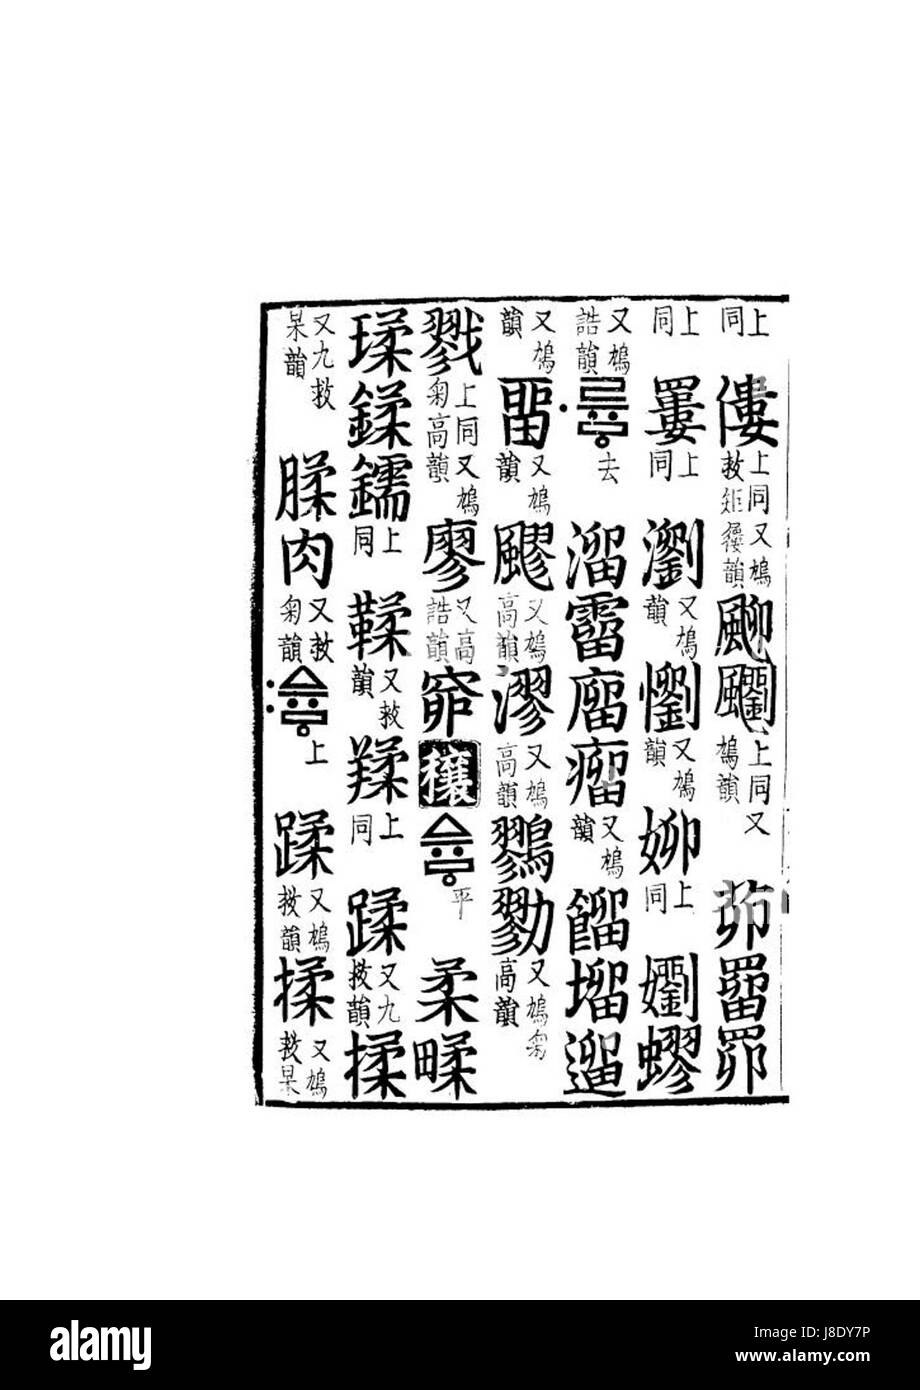 上同 僂 上同又鳩救矩屨韻 飀 上同又鳩韻 茆罶
上同 上同 瀏 又鳩韻 懰 又鳩韻 上同 嬼蟉
又鳩誥韻 ·류ᇢ 去 溜霤廇瘤 又鳩韻 餾塯遛
又鳩韻 又鳩韻 飂 又鳩高韻 漻 又鳩高韻 鷚勠 又鳩匊高韻
戮 上同又鳩匊高韻 廖 又高誥韻 窌 穰 ᅀᅲᇢ 平 柔
瑈鍒鑐 上同 鞣 又救韻 上同 蹂 又九救韻 揉
又九救杲韻 腬肉 又救匊韻 :ᅀᅲᇢ 上 蹂 又鳩救韻 揉 又鳩救杲
alamy
Image ID: J8DY7P
www.alamy.com